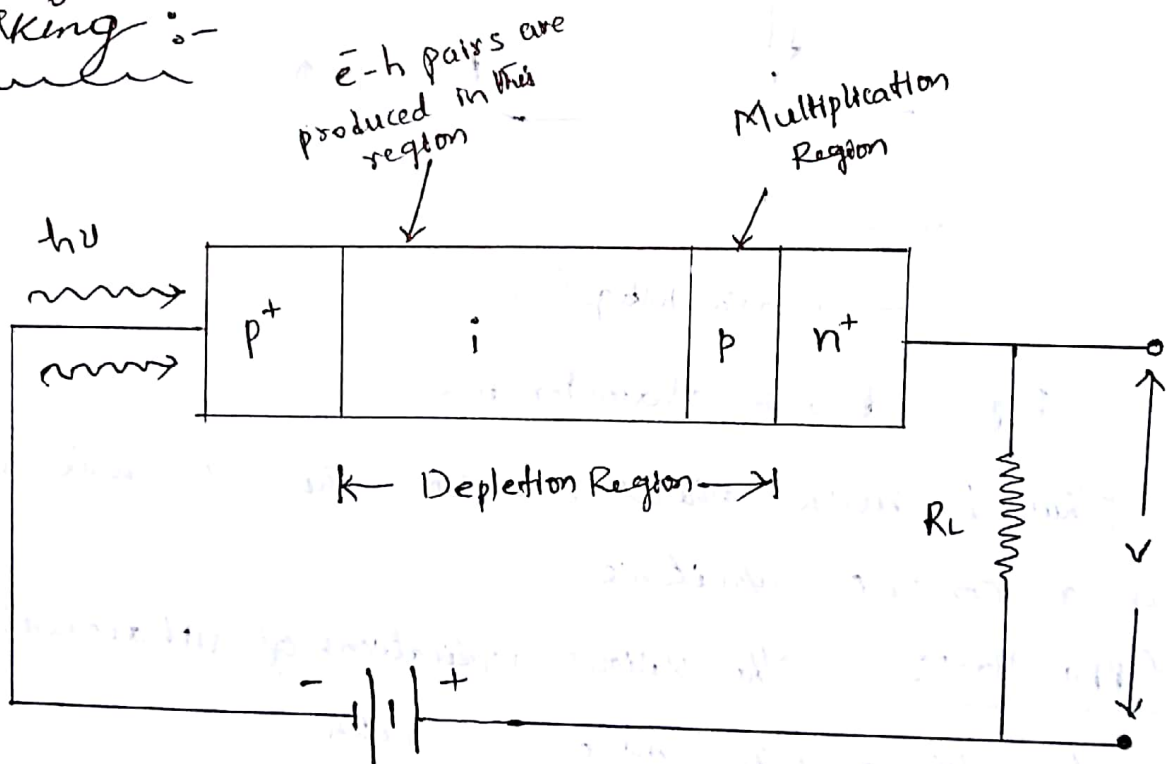 rking :-
ē-h pairs are
produced in this
region
Multiplication
Region
hν
p+
i
p
n+
Depletion Region
RL
V
- +